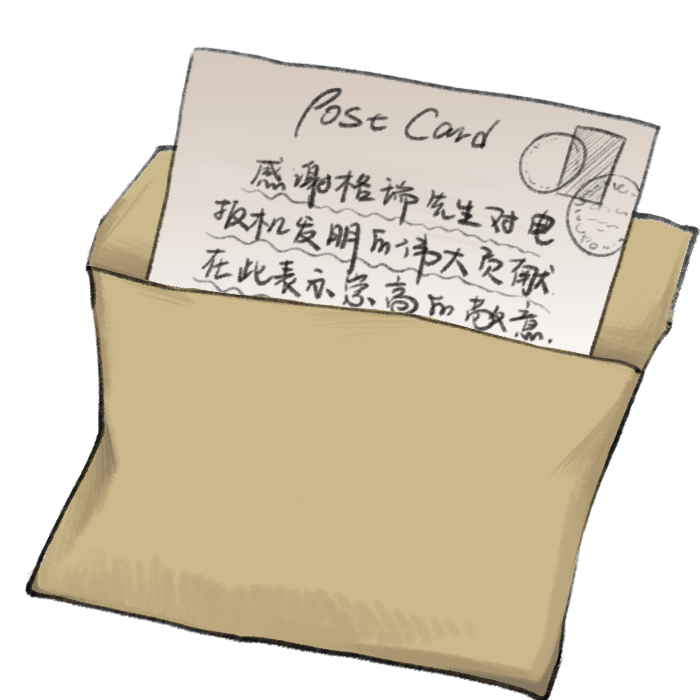 Post Card
感谢格蹄先生对电
报机发明的伟大贡献
在此表示崇高的敬意.